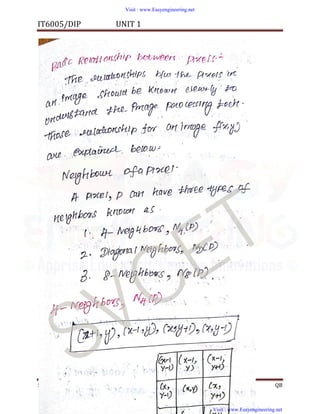 Visit : www.Easyengineering.net
IT6005/DIP UNIT 1
Basic Relationship between pixels:-
The relationships b/w the pixels in
an image should be known clearly to
understand the image processing tech.
those relationship for an image f(x,y)
are explained below.
Neighbours of a pixel.
A pixel, p can have three types of
neighbors known as.
1. 4- Neighbors, N4(P)
2. Diagonal Neighbors, ND(P)
3. 8- Neighbors, N8(P)
4- Neighbors, N4(P)
(x+1,y), (x-1,y), (x,y+1), (x,y-1)
(x-1 y-1) (x-1, y) (x-1, y+1)
(x, y-1) (x,y) (x, y+1)
SVCET
QB
Visit : www.Easyengineering.net